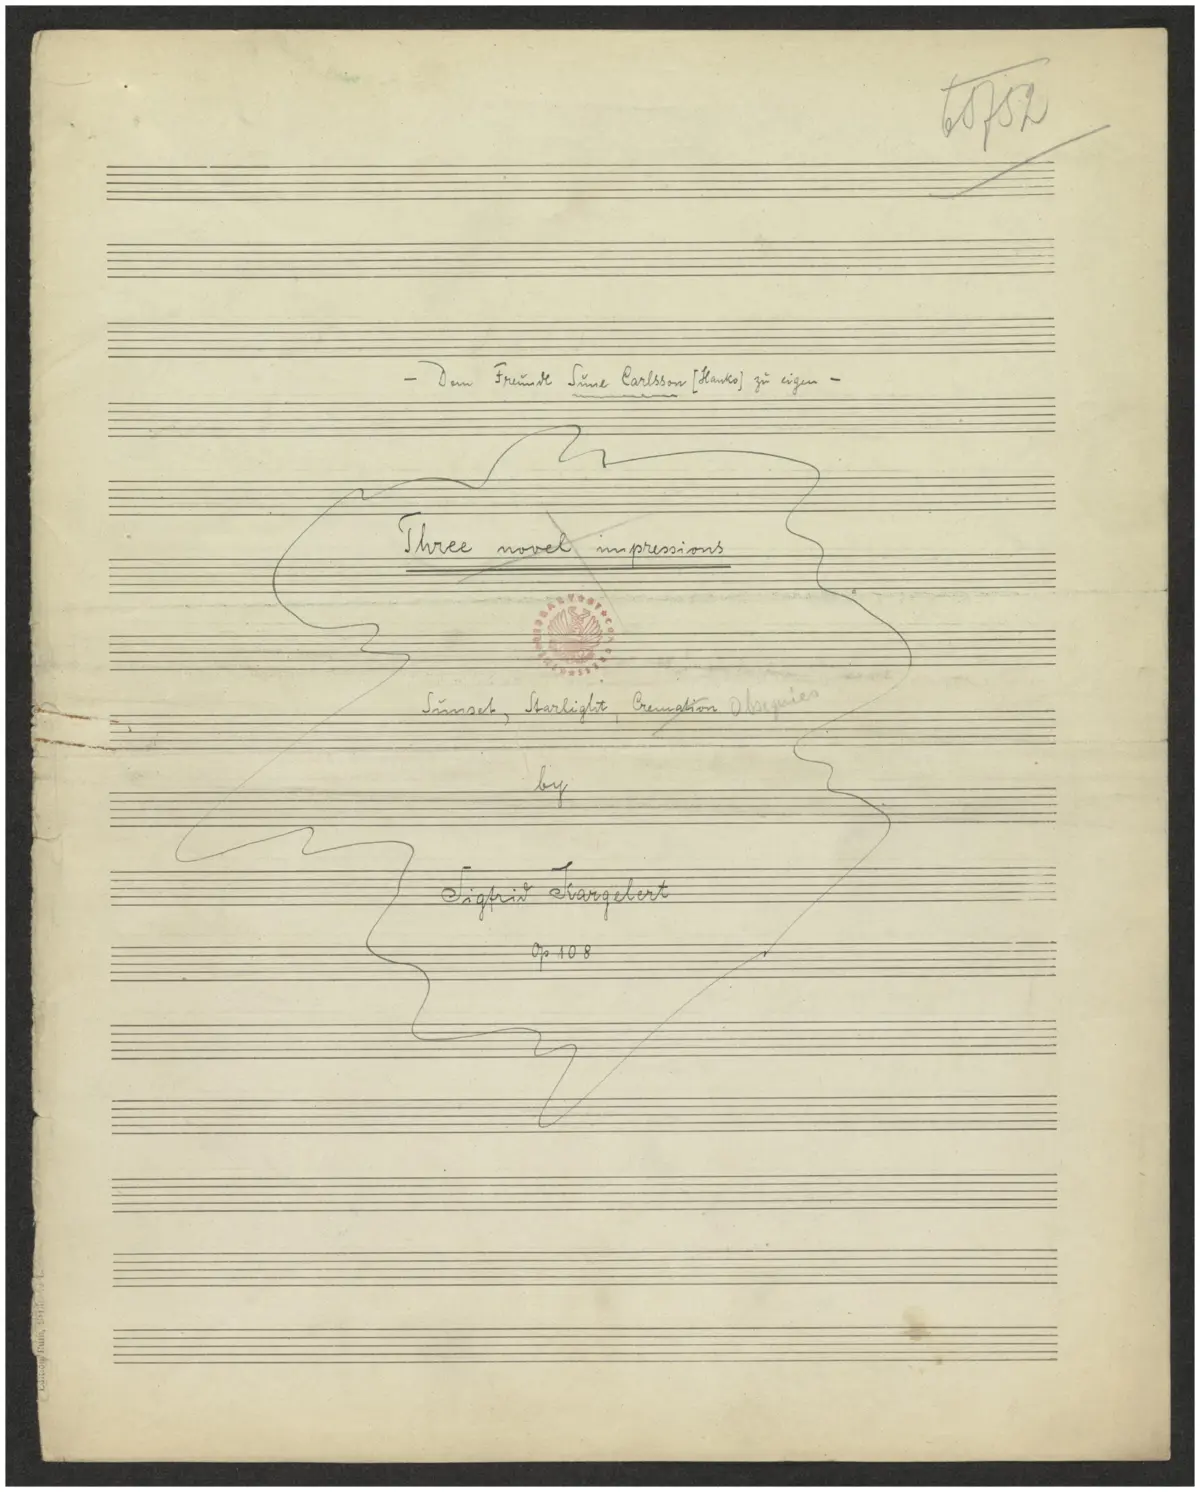 65752
— Dem Freunde Sune Carlsson [Hanko] zu eigen —
Three novel impressions
LIBRARY OF CONGRESS
Sunset, Starlight, Cremation Obsequies
by
Sigfrid Kargelert
Op 108